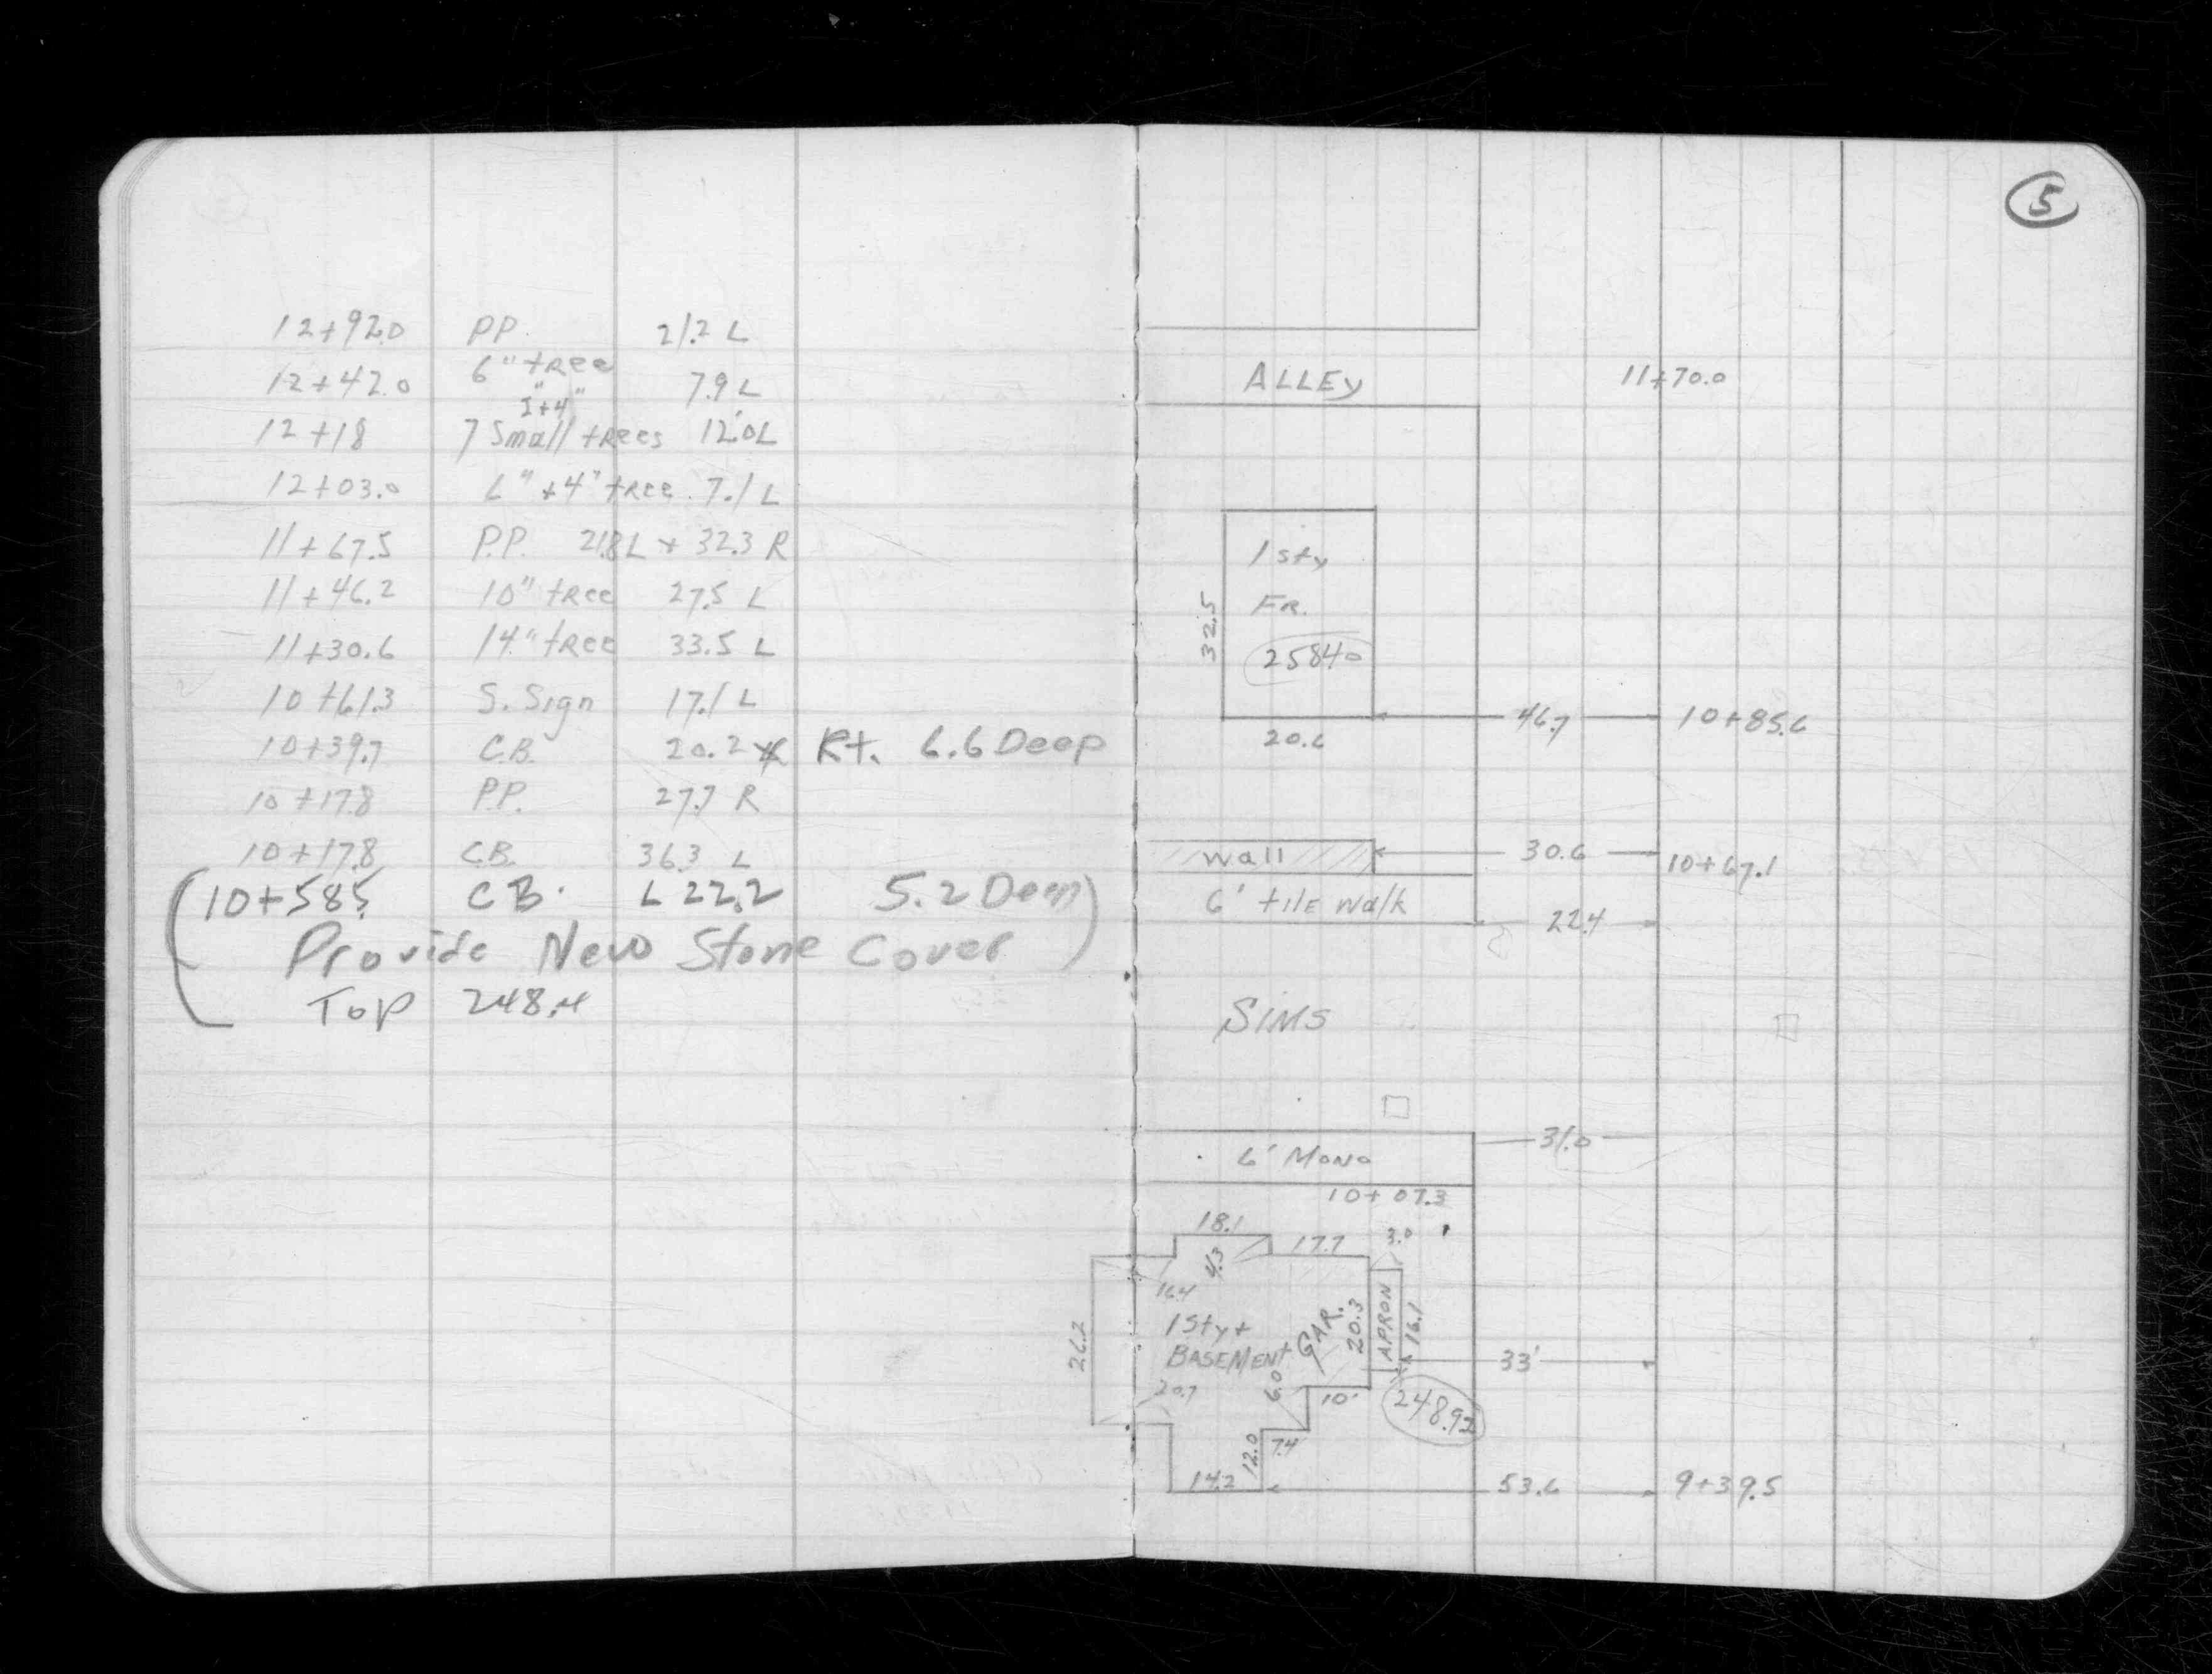 12+92.0 PP. 21.2 L
12+42.0 6" tree 7.9 L
1"+4"
12+18 7 Small trees 12.0 L
12+03.0 6"+4" tree 7.1 L
11+67.5 P.P. 21.8 L + 32.3 R
11+46.2 10" tree 27.5 L
11+30.6 14" tree 33.5 L
10+61.3 S. Sign 17.1 L
10+39.7 C.B. 20.2 Rt. 6.6 Deep
10+17.8 P.P. 27.7 R
10+17.8 C.B. 36.3 L
(10+58.5 C B. L 22.2 5.2 Deep)
Provide New Stone Cover
Top 248.4
5
ALLEY 11+70.0
1 sty
FR.
32.5
258.40
46.7 10+85.6
20.6
Wall 30.6 10+67.1
6' tile walk 22.4
SIMS
31.0
6' Mono
10+07.3
18.1
17.7
3.0
4.3
16.4
1 Sty +
BASEMENT
GAR.
20.3
APRON
16.1
26.2
33'
20.7
6.0
10'
248.92
12.0
7.4
14.2
53.6 9+39.5